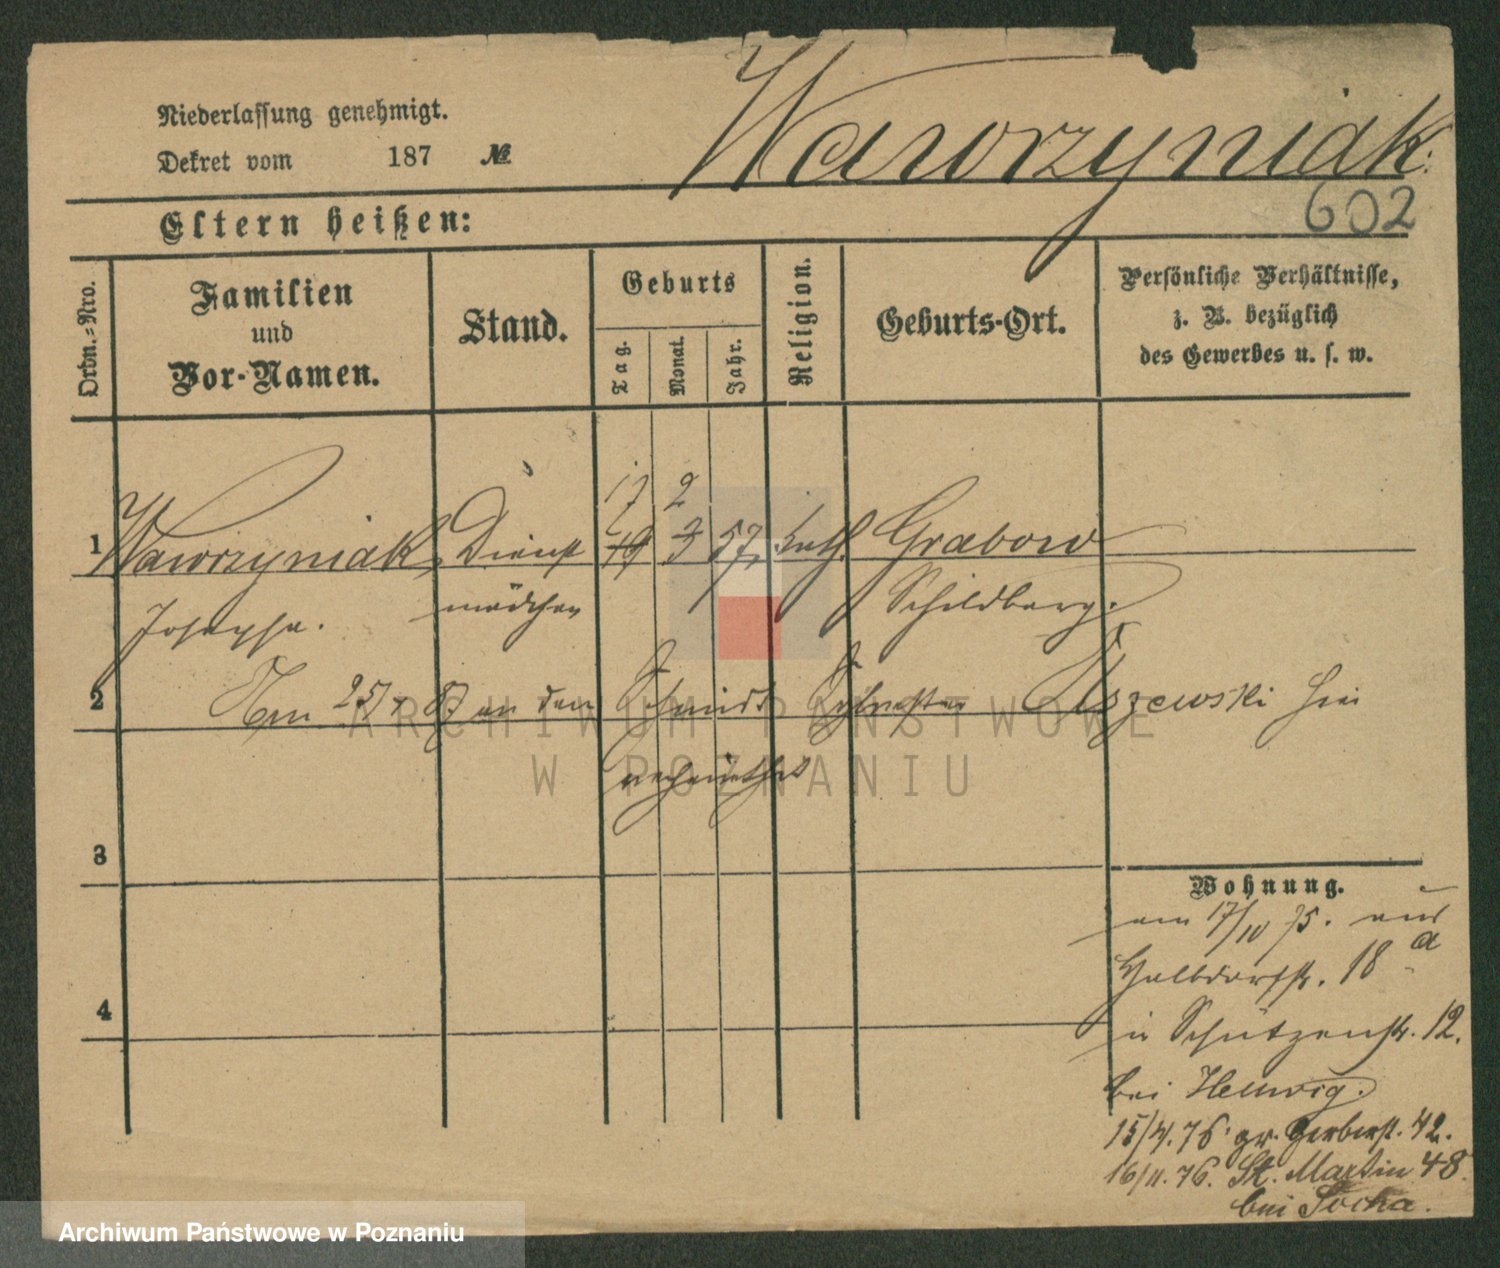 Niederlassung genehmigt.
Dekret vom 187 №
Wawrzyniak.
602
Eltern heißen:
Ordn.=Nro.
Familien
und
Vor-Namen.
Stand.
Geburts
Tag.
Monat.
Jahr.
Religion.
Geburts-Ort.
Persönliche Verhältnisse,
z. B. bezüglich
des Gewerbes u. s. w.
17 2
1 Wawrzyniak, Dienst 19 3 57, kath. Grabow
Josepha. mädchen Schildberg.
2 Am an den Schmidt Sylvester hier
verheirathet
3
4
Wohnung.
am 17/10 75. aus
Halbdorfstr. 18 a
in Schützenstr. 12.
bei Hellwig.
15/4. 76. gr. Gerberst. 42.
16/11. 76. St. Martin 48.
bei Socha.
ARCHIWUM PAŃSTWOWE
W POZNANIU
Archiwum Państwowe w Poznaniu